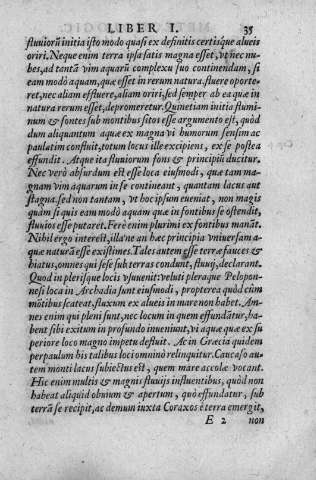 LIBER I. 35
fluuiorũ initia isto modo quasi ex definitis certisque alueis
oriri. Neque enim terra ipsa satis magna esset, vt nec nu-
bes, ad tantã vim aquarũ complexu suo continendam, si
eam modò aquam, quæ esset in rerum natura, fluere oporte-
ret, nec aliam effluere, aliam oriri, sed semper ab ea quæ in
natura rerum esset, depromeretur. Quinetiam initia flumi-
num & fontes sub montibus sitos esse argumento est, quòd
dum aliquantum aquæ ex magna vi humorum sensim ac
paulatim confluit, totum locus ille excipiens, ex se postea
effundit. Atque ita fluuiorum fons & principiũ ducitur.
Nec verò absurdum est esse loca eiusmodi, quæ tam ma-
gnam vim aquarum in se contineant, quantam lacus aut
stagna. sed non tantam, vt hoc ipsum eueniat, non magis
quàm si quis eam modò aquam quæ in fontibus se ostendit,
fluuios esse putaret. Ferè enim plurimi ex fontibus manãt.
Nihil ergo interest, illã'ne an hæc principia vniuersam a-
quæ naturã esse existimes. Tales autem esse terræ fauces &
hiatus, omnes qui sese sub terras condunt, fluuij, declarant.
Quod in plerisque locis vsuuenit: veluti pleraque Pelopon-
nesi loca in Archadia sunt eiusmodi, propterea quòd cùm
mõtib. scateat, fluxum ex alueis in mare non habet. Am-
nes enim qui pleni sunt, nec locum in quem effundãtur, ha-
bent sibi exitum in profundo inueniunt, vi aquæ quæ ex su
periore loco magno impetu defluit. Ac in Græcia quidem
perpaulum his talibus loci omninò relinquitur. Caucaso au-
tem monti lacus subiectus est, quem mare accolæ vocant.
Hic enim multis & magnis fluuijs influentibus, quòd non
habeat aliquid obuium & apertum, quò effundatur, sub
terrã se recipit, ac demum iuxta Coraxos è terra emergit,
E 2 non